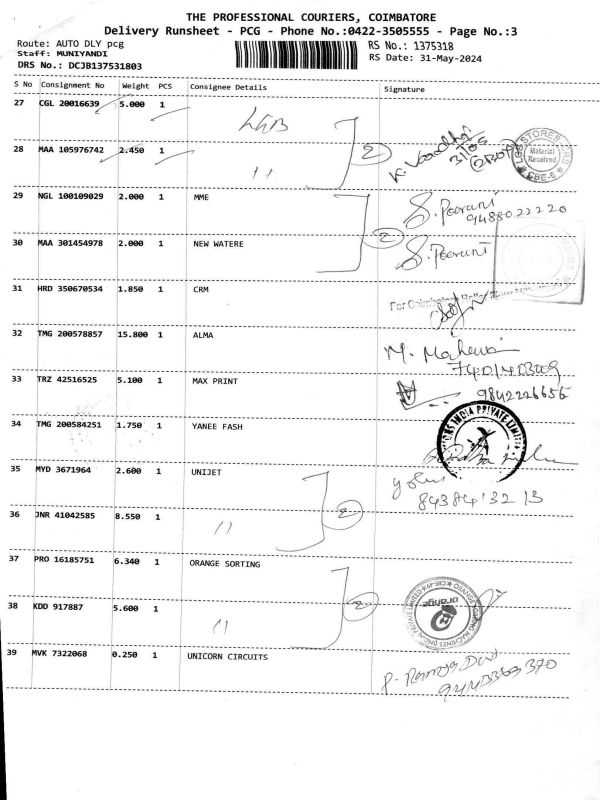 THE PROFESSIONAL COURIERS, COIMBATORE
Delivery Runsheet - PCG - Phone No.:0422-3505555 - Page No.:3
Route: AUTO DLY pcg
Staff: MUNIYANDI
DRS No.: DCJB137531803
RS No.: 1375318
RS Date: 31-May-2024
S No Consignment No Weight PCS Consignee Details Signature
27 CGL 20016639 5.000 1 LGB
28 MAA 105976742 2.450 1 ,, 2
LGB STORES
Material
Received
29 NGL 100109029 2.000 1 MME S. Poorani
9488022220
30 MAA 301454978 2.000 1 NEW WATERE 2 S. Poorani
31 HRD 350670534 1.850 1 CRM
For Coimbatore
32 TMG 200578857 15.800 1 ALMA
33 TRZ 42516525 5.100 1 MAX PRINT 9842226656
34 TMG 200584251 1.750 1 YANEE FASH
INDIA PRIVATE LIMITED
35 MYD 3671964 2.600 1 UNIJET
36 JNR 41042585 8.550 1 ,, 2
37 PRO 16185751 6.340 1 ORANGE SORTING
38 KDD 917887 5.600 1 ,, 2
orange
39 MVK 7322068 0.250 1 UNICORN CIRCUITS